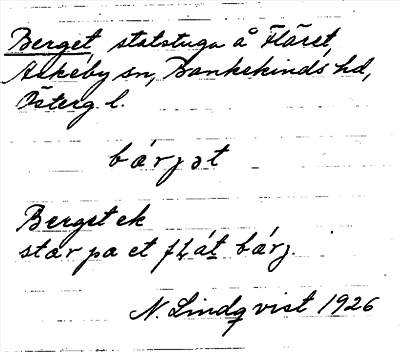 Berget, statstuga å Fläret,
Askeby sn, Bankekinds hd,
Österg. l.
bárjət
Bergstek
stær pa et flát bárj.
N. Lindqvist 1926